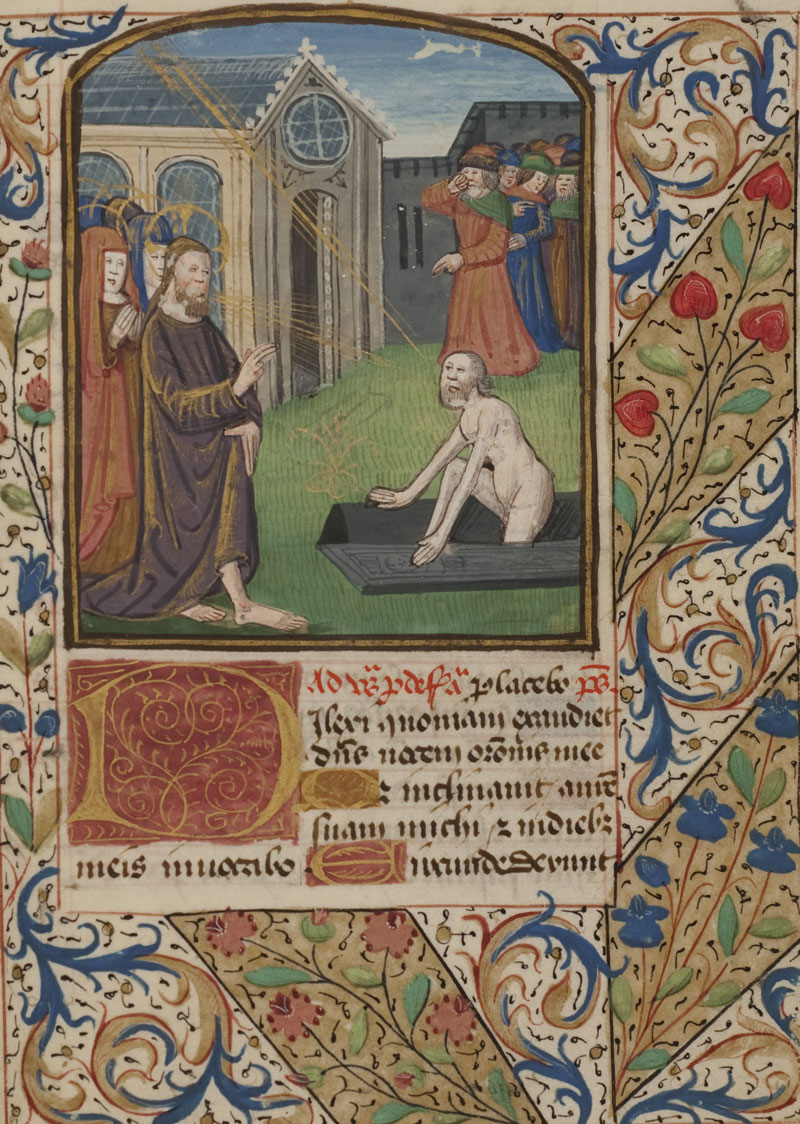 Ad vs̄ p deffā placebo ps̄.
Dilexi quoniam exaudiet
dn̄s vocem orōnis mee
Qꝛ inclinauit aurē
suam michi ⁊ in diebꝫ
meis inuocabo Circūdederunt